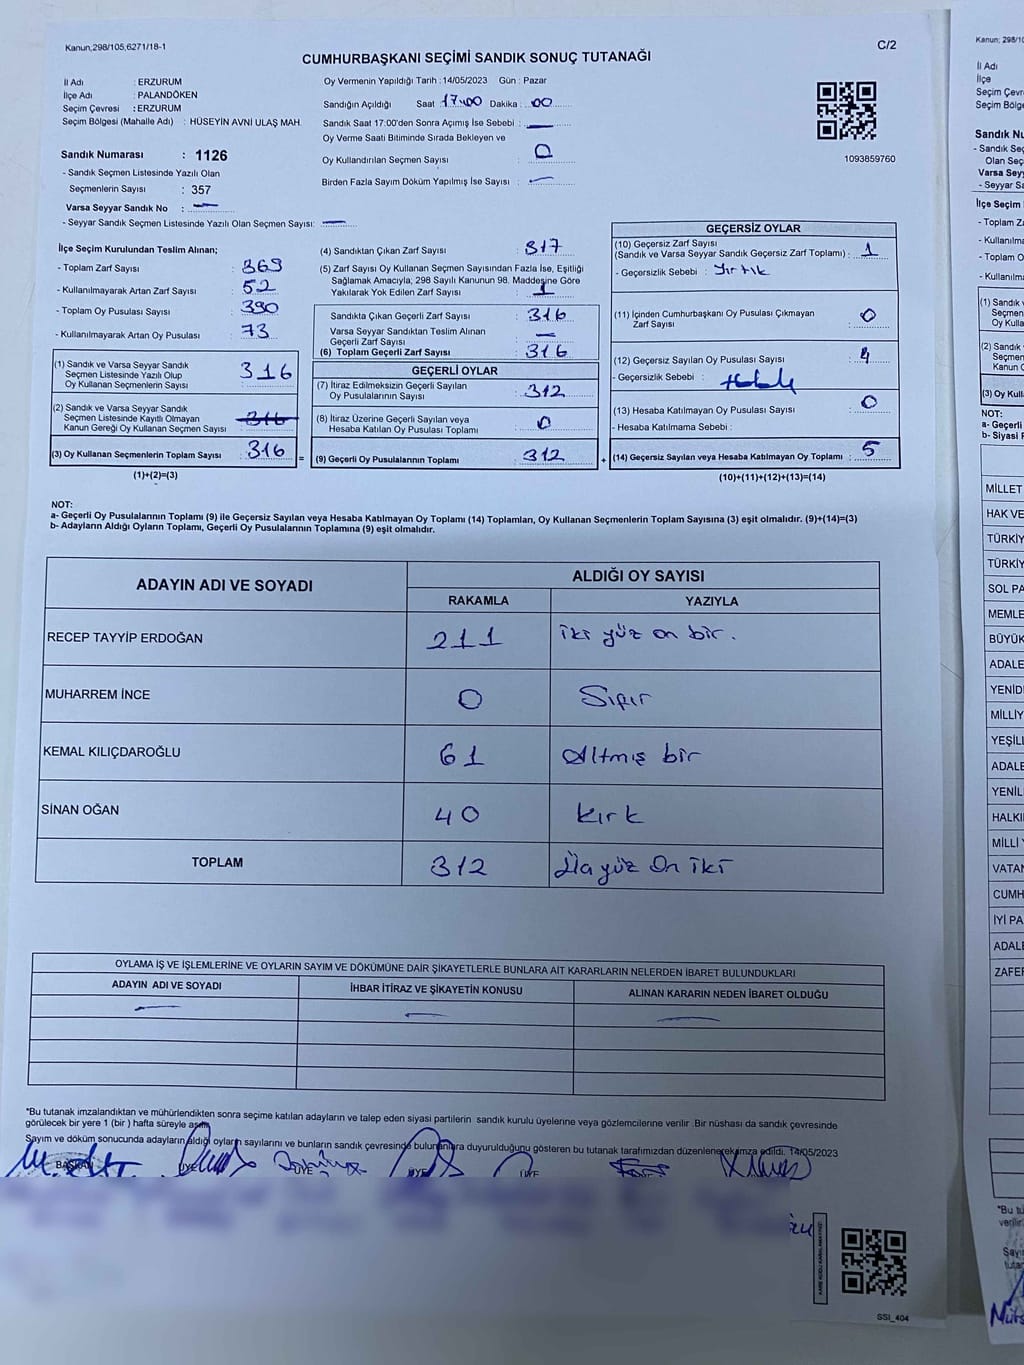 Kanun,298/105,6271/18-1
C/2
CUMHURBAŞKANI SEÇİMİ SANDIK SONUÇ TUTANAĞI
İl Adı : ERZURUM
İlçe Adı : PALANDÖKEN
Seçim Çevresi : ERZURUM
Seçim Bölgesi (Mahalle Adı) : HÜSEYİN AVNİ ULAŞ MAH.
Sandık Numarası : 1126
- Sandık Seçmen Listesinde Yazılı Olan
Seçmenlerin Sayısı : 357
Varsa Seyyar Sandık No : —
- Seyyar Sandık Seçmen Listesinde Yazılı Olan Seçmen Sayısı: —
Oy Vermenin Yapıldığı Tarih : 14/05/2023 Gün : Pazar
Sandığın Açıldığı Saat 17:00 Dakika : 00
Sandık Saat 17:00'den Sonra Açımış İse Sebebi : —
Oy Verme Saati Bitiminde Sırada Bekleyen ve
Oy Kullandırılan Seçmen Sayısı : 0
Birden Fazla Sayım Döküm Yapılmış İse Sayısı : —
1093859760
İlçe Seçim Kurulundan Teslim Alınan;
- Toplam Zarf Sayısı : 369
- Kullanılmayarak Artan Zarf Sayısı : 52
- Toplam Oy Pusulası Sayısı : 390
- Kullanılmayarak Artan Oy Pusulası : 73
(1) Sandık ve Varsa Seyyar Sandık
Seçmen Listesinde Yazılı Olup
Oy Kullanan Seçmenlerin Sayısı : 316
(2) Sandık ve Varsa Seyyar Sandık
Seçmen Listesinde Kayıtlı Olmayan
Kanun Gereği Oy Kullanan Seçmen Sayısı : 316
(3) Oy Kullanan Seçmenlerin Toplam Sayısı : 316
(1)+(2)=(3)
=
(4) Sandıktan Çıkan Zarf Sayısı : 317
(5) Zarf Sayısı Oy Kullanan Seçmen Sayısından Fazla İse, Eşitliği
Sağlamak Amacıyla, 298 Sayılı Kanunun 98. Maddesine Göre
Yakılarak Yok Edilen Zarf Sayısı : 1
Sandıkta Çıkan Geçerli Zarf Sayısı : 316
Varsa Seyyar Sandıktan Teslim Alınan
Geçerli Zarf Sayısı : —
(6) Toplam Geçerli Zarf Sayısı : 316
GEÇERLİ OYLAR
(7) İtiraz Edilmeksizin Geçerli Sayılan
Oy Pusulalarının Sayısı : 312
(8) İtiraz Üzerine Geçerli Sayılan veya
Hesaba Katılan Oy Pusulası Toplamı : 0
(9) Geçerli Oy Pusulalarının Toplamı : 312
+
GEÇERSİZ OYLAR
(10) Geçersiz Zarf Sayısı
(Sandık ve Varsa Seyyar Sandık Geçersiz Zarf Toplamı) : 1
- Geçersizlik Sebebi : Yırtık
(11) İçinden Cumhurbaşkanı Oy Pusulası Çıkmayan
Zarf Sayısı : 0
(12) Geçersiz Sayılan Oy Pusulası Sayısı : 4
- Geçersizlik Sebebi :
(13) Hesaba Katılmayan Oy Pusulası Sayısı : 0
- Hesaba Katılmama Sebebi :
(14) Geçersiz Sayılan veya Hesaba Katılmayan Oy Toplamı : 5
(10)+(11)+(12)+(13)=(14)
NOT:
a- Geçerli Oy Pusulalarının Toplamı (9) ile Geçersiz Sayılan veya Hesaba Katılmayan Oy Toplamı (14) Toplamları, Oy Kullanan Seçmenlerin Toplam Sayısına (3) eşit olmalıdır. (9)+(14)=(3)
b- Adayların Aldığı Oyların Toplamı, Geçerli Oy Pusulalarının Toplamına (9) eşit olmalıdır.
ADAYIN ADI VE SOYADI
ALDIĞI OY SAYISI
RAKAMLA YAZIYLA
RECEP TAYYİP ERDOĞAN 211 iki yüz on bir.
MUHARREM İNCE 0 Sıfır
KEMAL KILIÇDAROĞLU 61 Altmış bir
SİNAN OĞAN 40 kırk
TOPLAM 312 Üç yüz On iki
OYLAMA İŞ VE İŞLEMLERİNE VE OYLARIN SAYIM VE DÖKÜMÜNE DAİR ŞİKAYETLERLE BUNLARA AİT KARARLARIN NELERDEN İBARET BULUNDUKLARI
ADAYIN ADI VE SOYADI İHBAR İTİRAZ VE ŞİKAYETİN KONUSU ALINAN KARARIN NEDEN İBARET OLDUĞU
— — —
*Bu tutanak imzalandıktan ve mühürlendikten sonra seçime katılan adayların ve talep eden siyasi partilerin sandık kurulu üyelerine veya gözlemcilerine verilir .Bir nüshası da sandık çevresinde
görülecek bir yere 1 (bir ) hafta süreyle asılır.
Sayım ve döküm sonucunda adayların aldığı oyların sayılarını ve bunların sandık çevresinde bulunanlara duyurulduğunu gösteren bu tutanak tarafımızdan düzenlenerek imza edildi. 14/05/2023
BAŞKAN ÜYE ÜYE ÜYE ÜYE
SSİ_404
Kanun; 298/10
İl Adı
İlçe
Seçim Çevr
Seçim Bölge
Sandık Nu
- Sandık Seç
Olan Seç
Varsa Seyy
- Seyyar Sa
İlçe Seçim
- Toplam Za
- Kullanılma
- Toplam O
- Kullanılma
(1) Sandık
Seçmen
Oy Kulla
(2) Sandık
Seçmen
Kanun G
(3) Oy Kull
NOT:
a- Geçerli
b- Siyasi P
MİLLET
HAK VE
TÜRKİY
TÜRKİY
SOL PA
MEMLE
BÜYÜK
ADALE
YENİD
MİLLİY
YEŞİL
ADALE
YENİL
HALKI
MİLLİ
VATAN
CUMH
İYİ PA
ADALE
ZAFER
*Bu tu
verilir.
Sayı
tuta